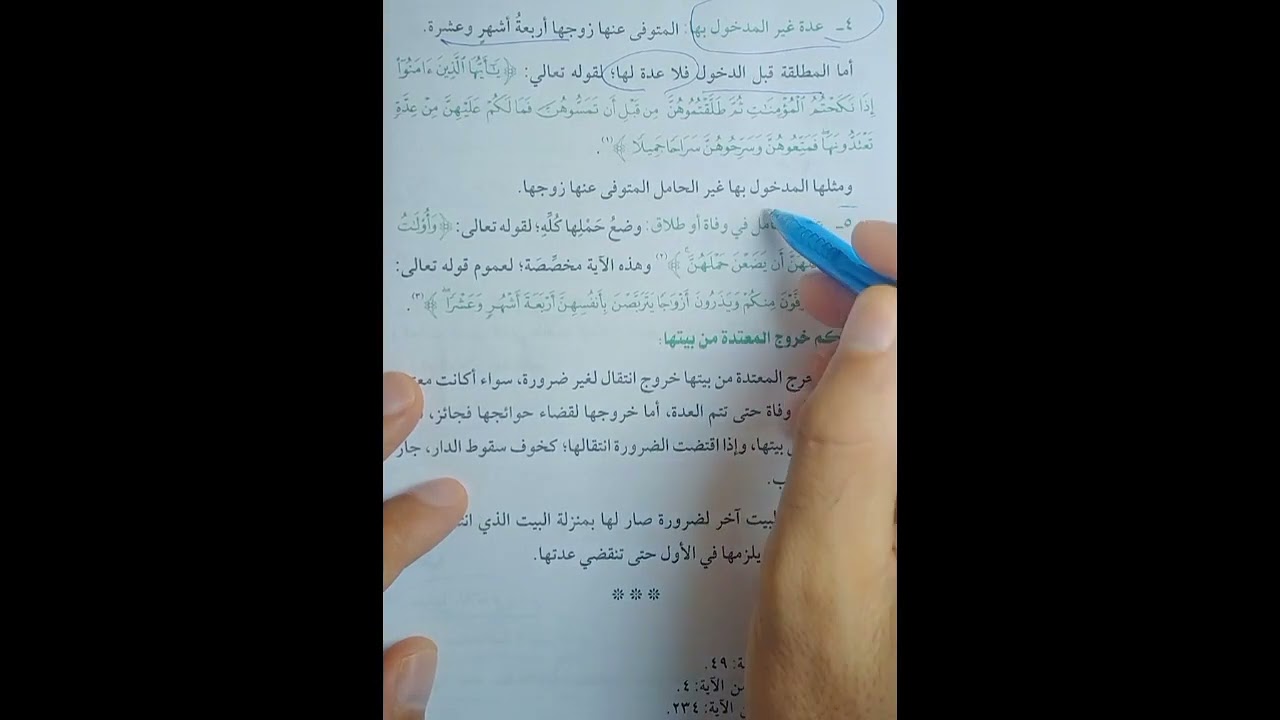 ٤ـ عدة غير المدخول بها: المتوفى عنها زوجها أربعةُ أشهرٍ وعشرة.
أما المطلقة قبل الدخول فلا عدة لها؛ لقوله تعالي: ﴿يَٰٓأَيُّهَا ٱلَّذِينَ ءَامَنُوٓا۟
إِذَا نَكَحْتُمُ ٱلْمُؤْمِنَٰتِ ثُمَّ طَلَّقْتُمُوهُنَّ مِن قَبْلِ أَن تَمَسُّوهُنَّ فَمَا لَكُمْ عَلَيْهِنَّ مِنْ عِدَّةٍ
تَعْتَدُّونَهَا ۖ فَمَتِّعُوهُنَّ وَسَرِّحُوهُنَّ سَرَاحًا جَمِيلًا﴾(١).
ومثلها المدخول بها غير الحامل المتوفى عنها زوجها.
٥ـ في وفاة أو طلاق: وضعُ حَمْلِها كُلِّهِ؛ لقوله تعالى: ﴿وَأُو۟لَٰتُ
أَن يَضَعْنَ حَمْلَهُنَّ ۚ﴾(٢) وهذه الآية مخصِّصَة؛ لعموم قوله تعالى:
مِنكُمْ وَيَذَرُونَ أَزْوَٰجًا يَتَرَبَّصْنَ بِأَنفُسِهِنَّ أَرْبَعَةَ أَشْهُرٍ وَعَشْرًا ۖ﴾(٣).
خروج المعتدة من بيتها:
المعتدة من بيتها خروج انتقال لغير ضرورة، سواء أكانت
وفاة حتى تتم العدة، أما خروجها لقضاء حوائجها فجائز،
بيتها، وإذا اقتضت الضرورة انتقالها؛ كخوف سقوط الدار، جار
آخر لضرورة صار لها بمنزلة البيت الذي
يلزمها في الأول حتى تنقضي عدتها.
❊ ❊ ❊
٤٩.
الآية: ٤.
الآية: ٢٣٤.